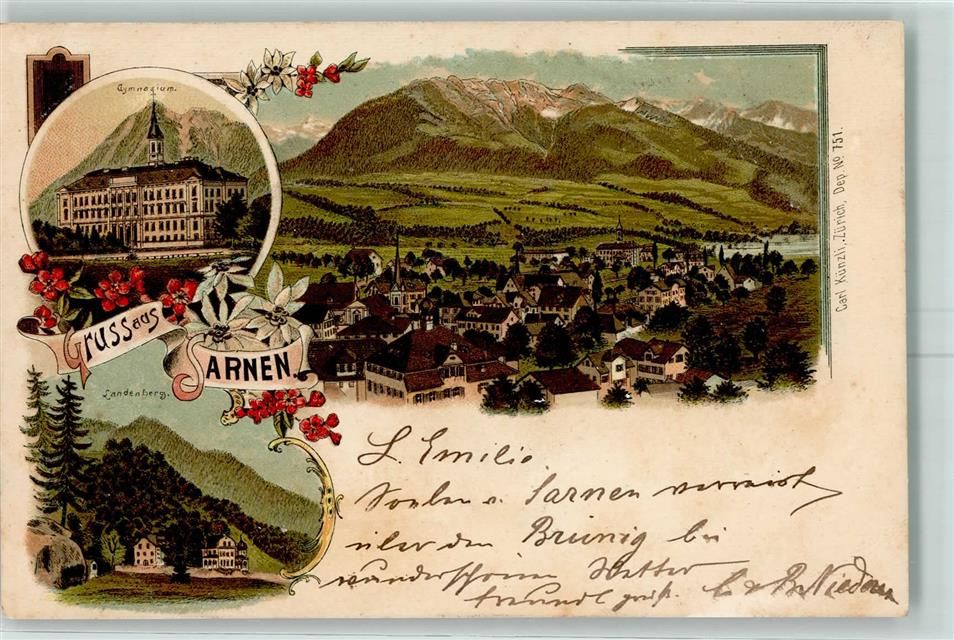 Gymnasium.
Gruss aus
SARNEN.
Landenberg.
Carl Künzli, Zürich, Dep. No 751.
L. Emilie
Soeben v. Sarnen verreist
über den Brünig bei
wunderschönem Wetter
freundl. grüß.